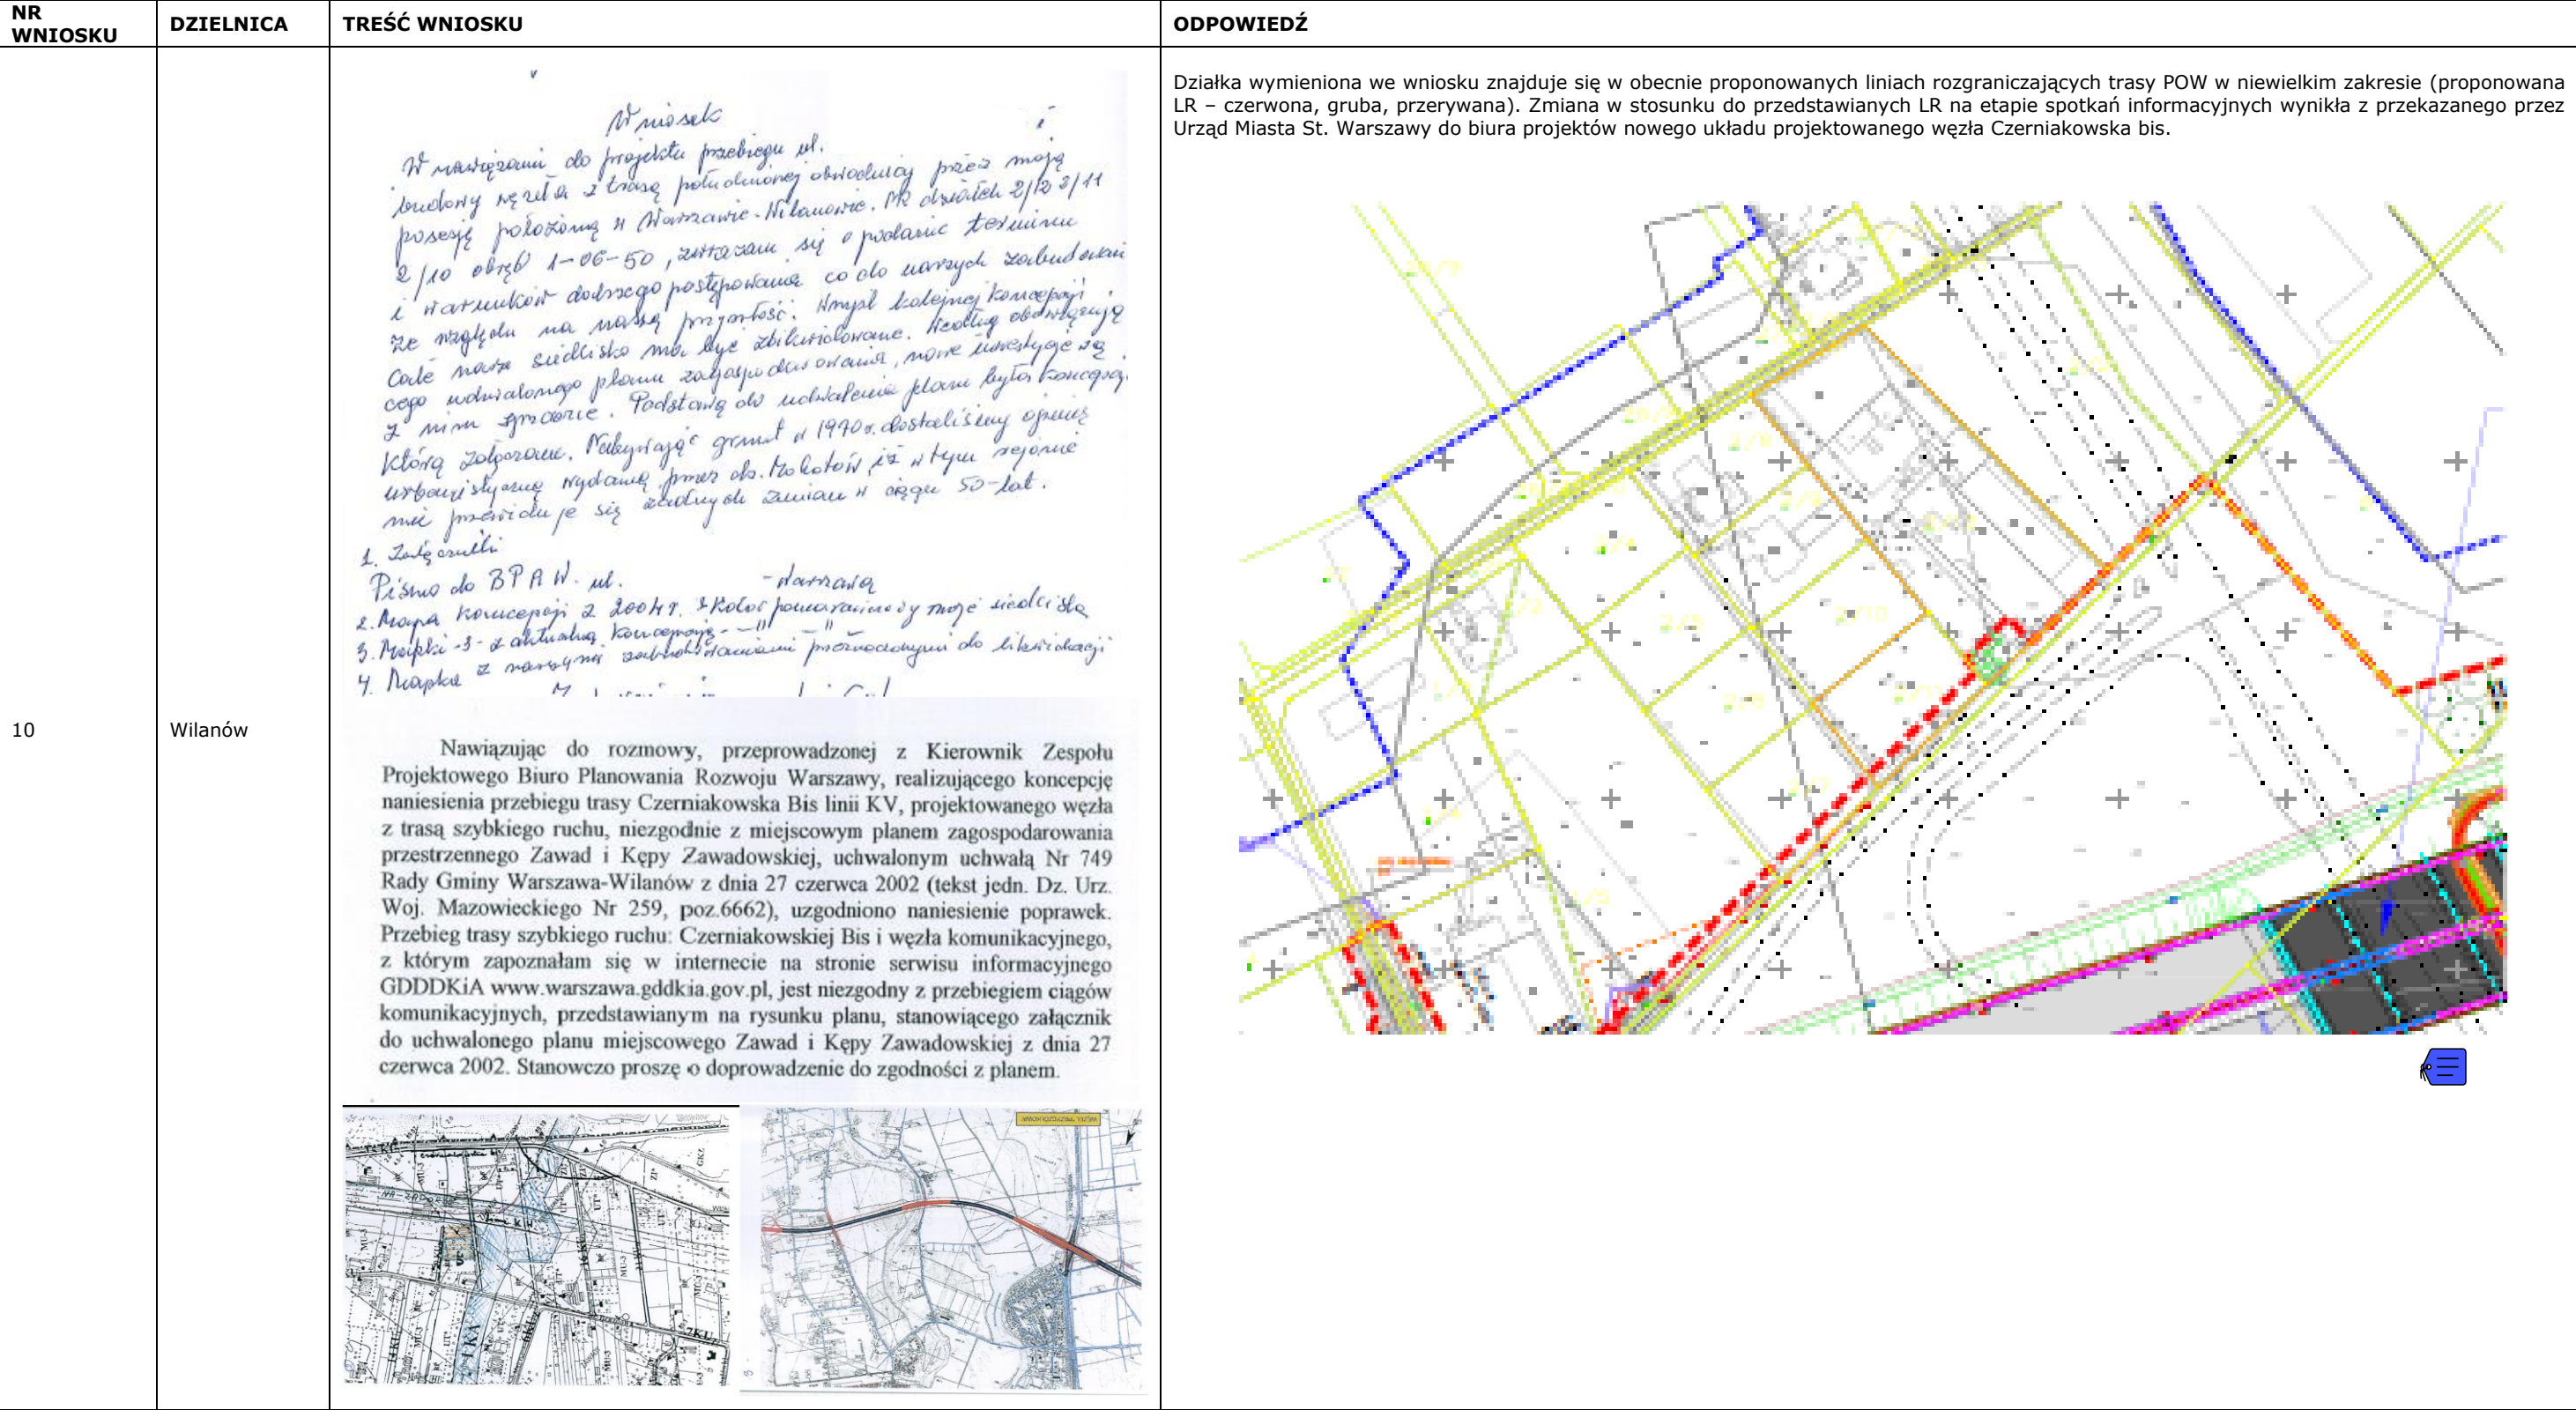 NR WNIOSKU
DZIELNICA
TREŚĆ WNIOSKU
ODPOWIEDŹ
10
Wilanów
Wniosek
W nawiązaniu do projektu przebiegu ul.
budowy węzeła z trasą południowej obwodnicy przez moją
posesję położoną w Warszawie-Wilanowie. Nr działek 2/12 2/11
2/10 obręb 1-06-50, zwracam się o podanie terminu
i warunków dalszego postępowania co do naszych zabudowań
ze względu na naszą przyszłość. Wmyśl kolejnej koncepcji
Całe nasze siedlisko ma być zlikwidowane. Według obowiązują
cego uchwalonego planu zagospodarowania, nowe inwestycje są
z nim sprzeczne. Podstawą do uchwalenia planu była koncepcja,
którą załączam. Nabywając grunt w 1970r. dostaliśmy opinię
urbanistyczną wydaną przez dz. Mokotów, iż w tym rejonie
nie przewiduje się żadnych zmian w ciągu 50-lat.
1. Załączniki
Pismo do BPRW. ul. - Warszawa
2. Mapa koncepcji z 2004r. Kolor pomarańczowy moje siedliska
3. Mapki -3- z aktualną koncepcją - 〃 - 〃
4. Mapka z naszymi zabudowaniami przeznaczonymi do likwidacji
Nawiązując do rozmowy, przeprowadzonej z Kierownik Zespołu
Projektowego Biuro Planowania Rozwoju Warszawy, realizującego koncepcję
naniesienia przebiegu trasy Czerniakowska Bis linii KV, projektowanego węzła
z trasą szybkiego ruchu, niezgodnie z miejscowym planem zagospodarowania
przestrzennego Zawad i Kępy Zawadowskiej, uchwalonym uchwałą Nr 749
Rady Gminy Warszawa-Wilanów z dnia 27 czerwca 2002 (tekst jedn. Dz. Urz.
Woj. Mazowieckiego Nr 259, poz.6662), uzgodniono naniesienie poprawek.
Przebieg trasy szybkiego ruchu: Czerniakowskiej Bis i węzła komunikacyjnego,
z którym zapoznałam się w internecie na stronie serwisu informacyjnego
GDDDKiA www.warszawa.gddkia.gov.pl, jest niezgodny z przebiegiem ciągów
komunikacyjnych, przedstawianym na rysunku planu, stanowiącego załącznik
do uchwalonego planu miejscowego Zawad i Kępy Zawadowskiej z dnia 27
czerwca 2002. Stanowczo proszę o doprowadzenie do zgodności z planem.
Działka wymieniona we wniosku znajduje się w obecnie proponowanych liniach rozgraniczających trasy POW w niewielkim zakresie (proponowana
LR – czerwona, gruba, przerywana). Zmiana w stosunku do przedstawianych LR na etapie spotkań informacyjnych wynikła z przekazanego przez
Urząd Miasta St. Warszawy do biura projektów nowego układu projektowanego węzła Czerniakowska bis.